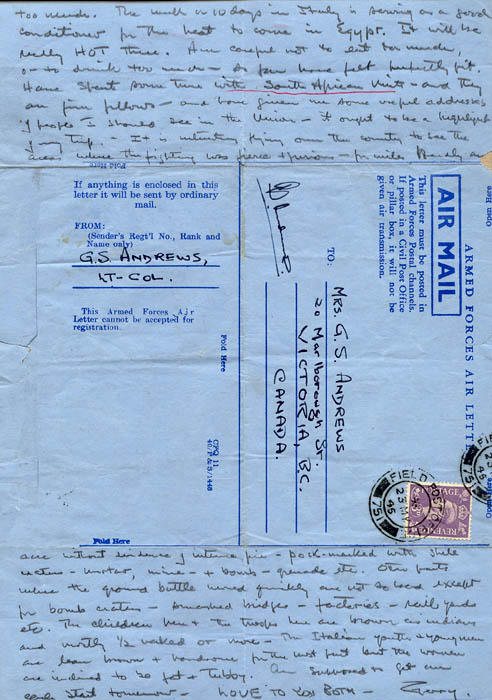 too much. The week or 10 days in Italy is serving as a good
conditioner for the heat to come in Egypt. It will be
really HOT there. Am careful not to eat too much,
or to drink too much - So far have felt perfectly fit.
Have spent some time with South African Units - and they
are fine fellows - and have given me some useful addresses
of people I should see in the Union - it ought to be a highlight
of my trip - It is interesting flying over the country to see the
areas where the fighting was fierce & - for miles
Fold Here
If anything is enclosed in this
letter it will be sent by ordinary
mail.
FROM:
(Sender's Regt'l No., Rank and
Name only)
G.S. ANDREWS,
LT-COL.
This Armed Forces Air
Letter cannot be accepted for
registration.
Fold Here
CPQ 11
ARMED FORCES AIR LETT
AIR MAIL
This letter must be posted in
Armed Forces Postal channels.
If posted in a Civil Post Office
or pillar box, it will not be
given air transmission.
TO:
MRS. G. S. ANDREWS
20 Marlborough St.
VICTORIA, B.C.
CANADA.
Open Here
FIELD POST OFFICE
23
45
751
POSTAGE
REVENUE
FIE
45
751
Fold Here
acre without evidence of intense fire - pock-marked with shell
craters - mortar, mine - & bomb - grenade etc. Other parts
where the ground battle moved quickly are not so bad except
for bomb craters - smashed bridges - factories - rail yards
etc. The children here & the troops here are brown as indians
and mostly ½ naked or more - The Italian youths & young men
are lean brown & handsome for the most part but the women
are inclined to be fat & tubby. Am supposed to get an
early start tomorrow - LOVE TO YOU BOTH